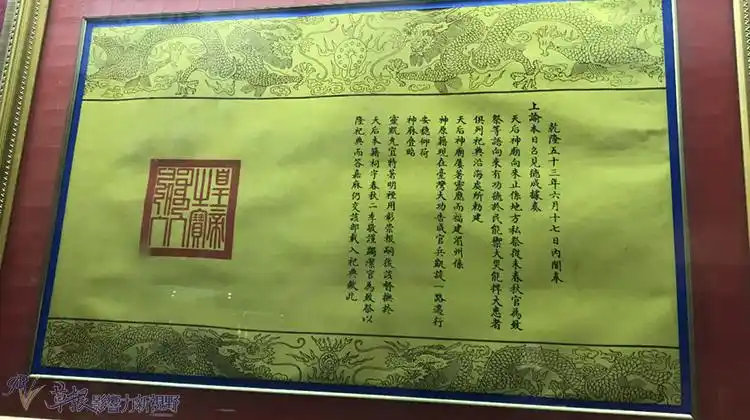 乾隆五十三年六月十七日內閣奉
上諭本日召見德成據奏
天后神廟向來止係地方私祭從未春秋官為致
祭等語向來有功德於民能禦大災能捍大患者
俱列祀典沿海處所勅建
天后神廟屢著靈應而福建湄州係
神原籍現在臺灣大功告成官兵凱旋一路遄行
安穩仰荷
神庥疊臨
靈貺允宜特著明禋用彰崇報嗣後該督撫於
天后本籍祠宇春秋二季敬謹蠲潔官為致祭以
隆祀典而答嘉庥仍交該部載入祀典欽此
皇帝之寶
草根影響力新視野